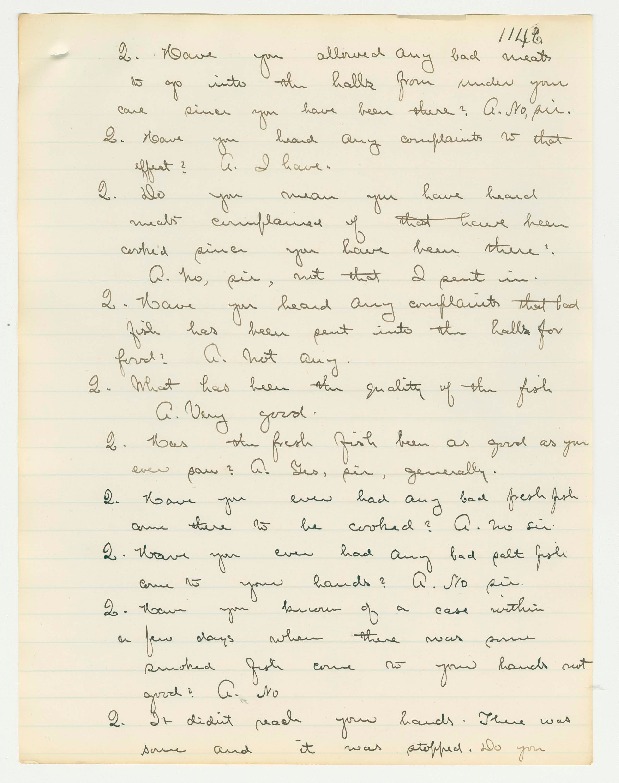 1146
Q. Have you allowed any bad meats
to go into the halls from under your
care since you have been there? A. No, sir.
Q. Have you heard any complaints to that
effect? A. I have.
Q. Do you mean you have heard
meats complained of that have been
cooked since you have been there?
A. No, sir, not that I sent in.
Q. Have you heard any complaints that bad
fish has been sent into the halls for
food? A. Not any.
Q. What has been the quality of the fish
A. Very good.
Q. Has the fresh fish been as good as you
ever saw? A. Yes, sir, generally.
Q. Have you ever had any bad fresh fish
come there to be cooked? A. No sir.
Q. Have you ever had any bad salt fish
come to your hands? A. No sir.
Q. Have you known of a case within
a few days when there was some
smoked fish come to your hands not
good? A. No
Q. It didn't reach your hands. There was
some and it was stopped. Do you